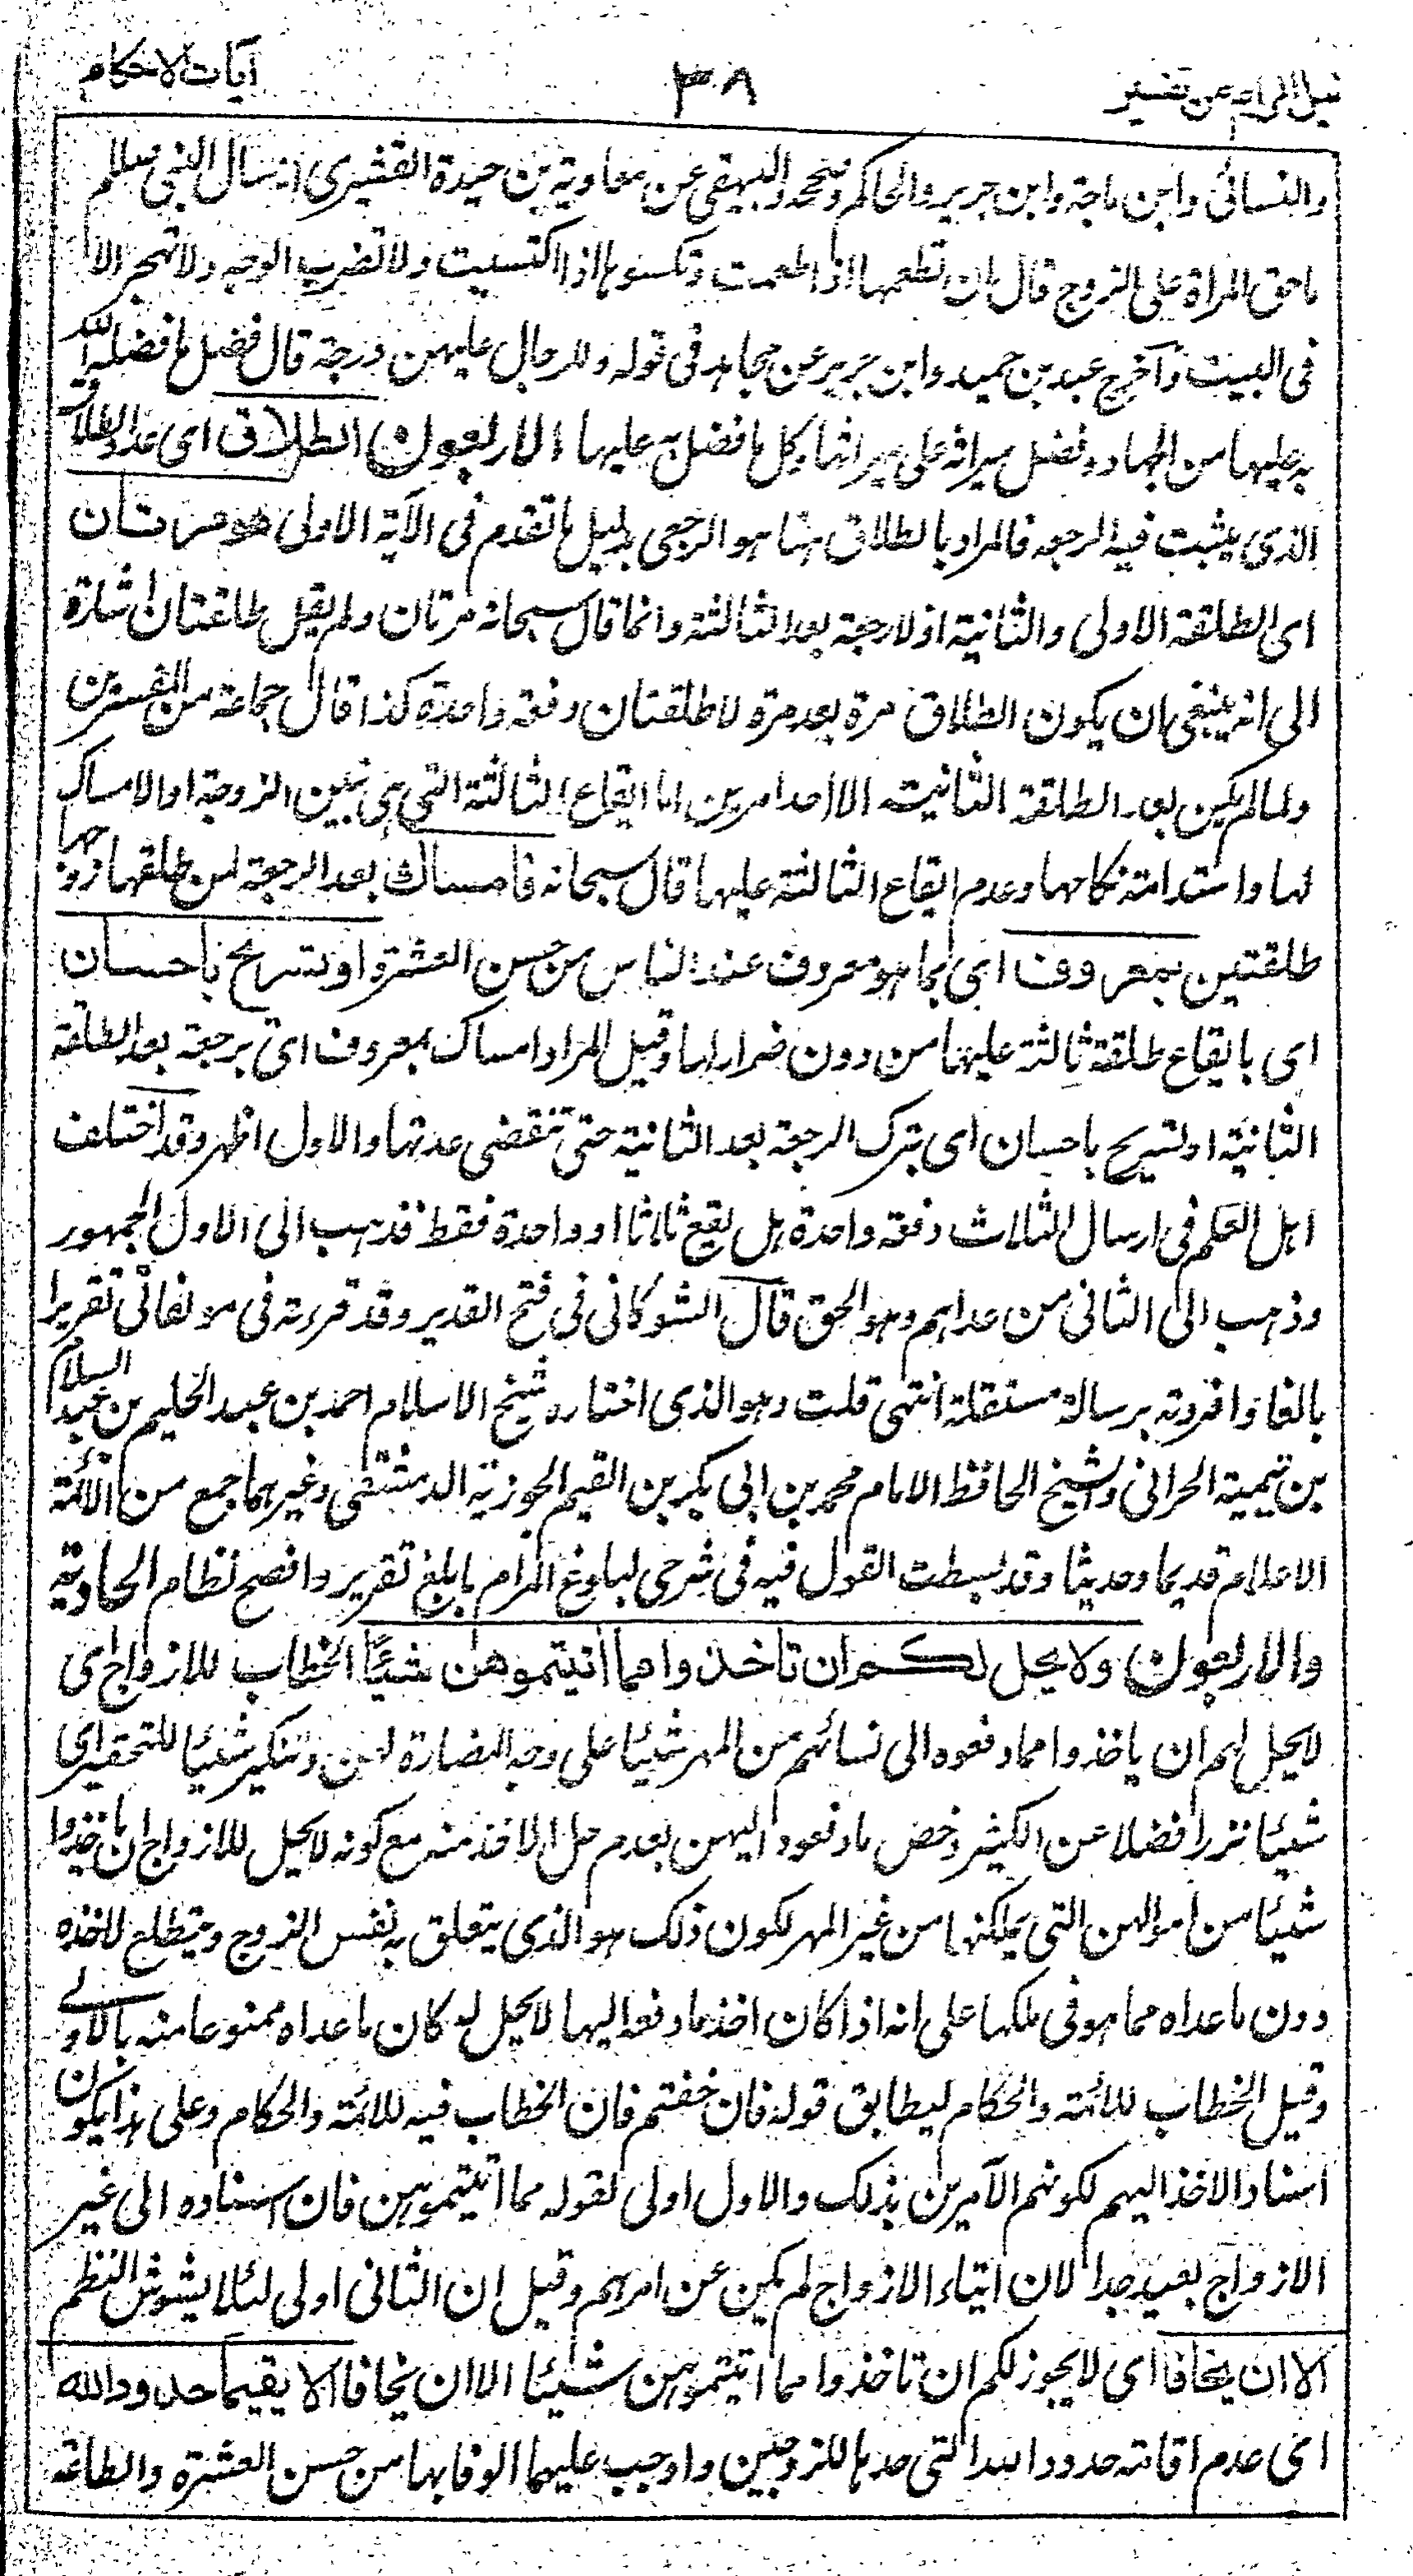 نيل المرام من تفسير ٣٨ آيات الاحكام
والنسائى وابن ماجة وابن جرير والحاكم وصححه والبيهقى عن معاوية بن حيدة القشيرى انه سال النبى صلعم
ما حق المراة على الزوج قال ان تطعمها اذا طعمت وتكسوها اذا اكتسيت ولا تضرب الوجه ولا تهجر الا
فى البيت وآخرج عبد بن حميد وابن جرير عن مجاهد فى قوله وللرجال عليهن درجة قال فضل ما فضله الله
به عليها من الجهاد وفضل ميراثه على ميراثها وكل ما فضل به عليها الاربعون الطلاق اى عدد الطلاق
الذى يثبت فيه الرجعه فالمراد بالطلاق هنا هو الرجعى بدليل ما تقدم فى الآية الاولى هو مرتان
اى الطلقة الاولى والثانية اذ لا رجعة بعد الثالثة وانما قال سبحانه مرتان ولم يقل طلقتان اشارة
الى انه ينبغى ان يكون الطلاق مرة بعد مرة لا طلقتان دفعه واحدة كذا قال جماعة من المفسرين
ولما لم يكن بعد الطلقة الثانيته الا احد امرين اما ايقاع الثالثة التى هى تبين الزوجة او الامساك
لها واستدامة نكاحها وعدم ايقاع الثالثة عليها قال سبحانه فامساك بعد الرجعة لمن طلقها زوجها
طلقتين بمعروف اى بما هو معروف عند الناس من حسن العشرة او تسريح باحسان
اى بايقاع طلقة ثالثة عليها من دون ضرار لها وقيل المراد امساك بمعروف اى برجعة بعد الطلقة
الثانية او تسريح باحسان اى بترك الرجعة بعد الثانية حتى تنقضى عدتها والاول اظهر وقد اختلف
اهل العلم فى ارسال الثلاث دفعه واحدة هل يقع ثلاثا او واحدة فقط فذهب الى الاول الجمهور
وذهب الى الثانى من عداهم وهو الحق قال الشوكانى فى فتح القدير وقد قررته فى مولفاتى تقريرا
بالغا وافردته برسالة مستقلة انتهى قلت وهو الذى اختاره شيخ الاسلام احمد بن عبد الحليم بن عبد السلام
بن تيمية الحرانى والشيخ الحافظ الامام محمد بن ابى بكر بن القيم الجوزية الدمشقى وغيرهما جمع من الائمة
الاعلام قديما وحديثا وقد بسطت القول فيه فى شرحى لبلوغ المرام بابلغ تقرير وافصح نظام الحادية
والاربعون ولا يحل لكم ان تاخذوا مما آتيتموهن شيئًا الخطاب للازواج اى
لا يحل لهم ان ياخذوا مما دفعوه الى نسائهم من المهر شيئا على وجه المضارة لهن وتنكير شيئا للتحقير اى
شيئا نزرا فضلا عن الكثير وخص ما دفعوه اليهن بعدم حل الاخذ منه مع كونه لا يحل للازواج ان ياخذوا
شيئا من اموالهن التى يملكنها من غير المهر لكون ذلك هو الذى يتعلق به نفس الزوج ويتطلع لاخذه
دون ما عداه مما هو فى ملكها على انه اذا كان اخذ ما دفعه اليها لا يحل له كان ما عداه ممنوعا منه بالاولى
وقيل الخطاب للائمة والحكام ليطابق قوله فان خفتم فان الخطاب فيه للائمة والحكام وعلى هذا يكون
اسناد الاخذ اليهم لكونهم الآمرين بذلك والاول اولى لقوله مما اتيتموهن فان اسناده الى غير
الازواج بعيد جدا لان ايتاء الازواج لم يكن عن امرهم وقيل ان الثانى اولى لئلا يشوش النظم
الا ان يخافا اى لا يجوز لكم ان تاخذوا مما اتيتموهن شيئا الا ان يخافا الا يقيما حدود الله
اى عدم اقامة حدود الله التى حدها للزوجين واوجب عليهما الوفا بها من حسن العشرة والطاعة